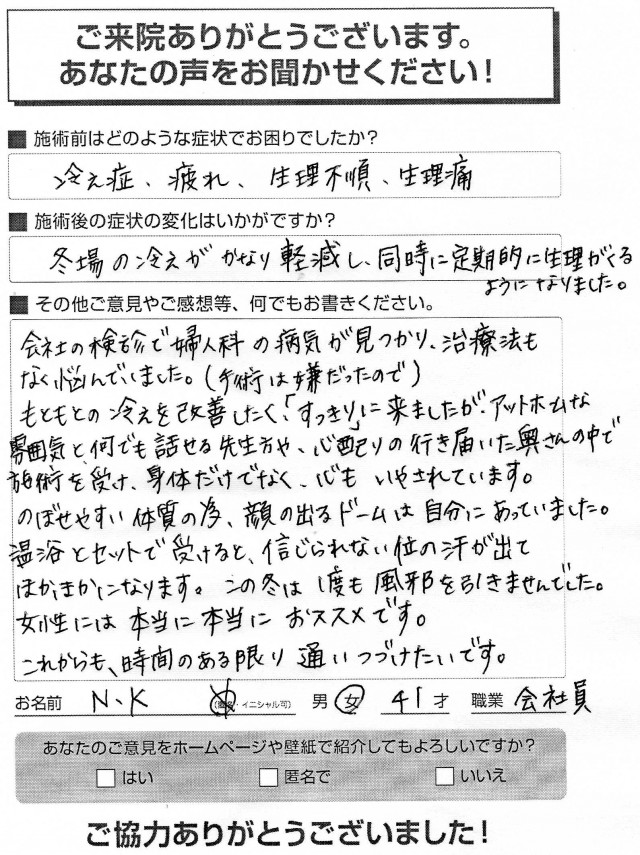 ご来院ありがとうございます。
あなたの声をお聞かせください!
■ 施術前はどのような症状でお困りでしたか?
冷え症、疲れ、生理不順、生理痛
■ 施術後の症状の変化はいかがですか?
冬場の冷えがかなり軽減し、同時に定期的に生理がくる
ようになりました。
■ その他ご意見やご感想等、何でもお書きください。
会社の検診で婦人科の病気が見つかり、治療法も
なく悩んでいました。(手術は嫌だったので)
もともとの冷えを改善したく、「すっきり」に来ましたが、アットホームな
雰囲気と何でも話せる先生方や、心配りの行き届いた奥さんの中で
施術を受け、身体だけでなく、心もいやされています。
のぼせやすい体質の為、顔の出るドームは自分にあっていました。
温浴とセットで受けると、信じられない位の汗が出て
ほかほかになります。この冬は1度も風邪を引きませんでした。
女性には本当に本当におススメです。
これからも、時間のある限り通いつづけたいです。
お名前 N.K (・イニシャル可) 男 女 41才 職業 会社員
あなたのご意見をホームページや壁紙で紹介してもよろしいですか?
□ はい □ 匿名で □ いいえ
ご協力ありがとうございました!